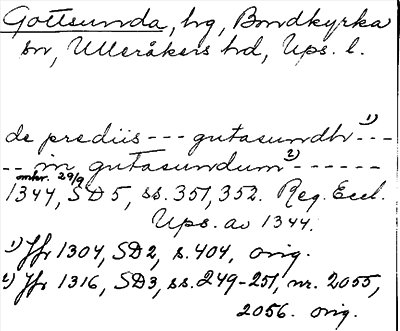 Gottsunda, hg, Bondkyrka
sn, Ulleråkers hd, Ups. l.
de prediis --- gutasundbr 1) ---
-- in gutasundum 2) ------
omkr. 29/9
1344, SD5, ss. 351, 352. Reg. Eccl.
Ups. av 1344.
1) Jfr 1304, SD2, s. 404, orig.
2) Jfr 1316, SD3, ss. 249-251, nr. 2055,
2056. orig.